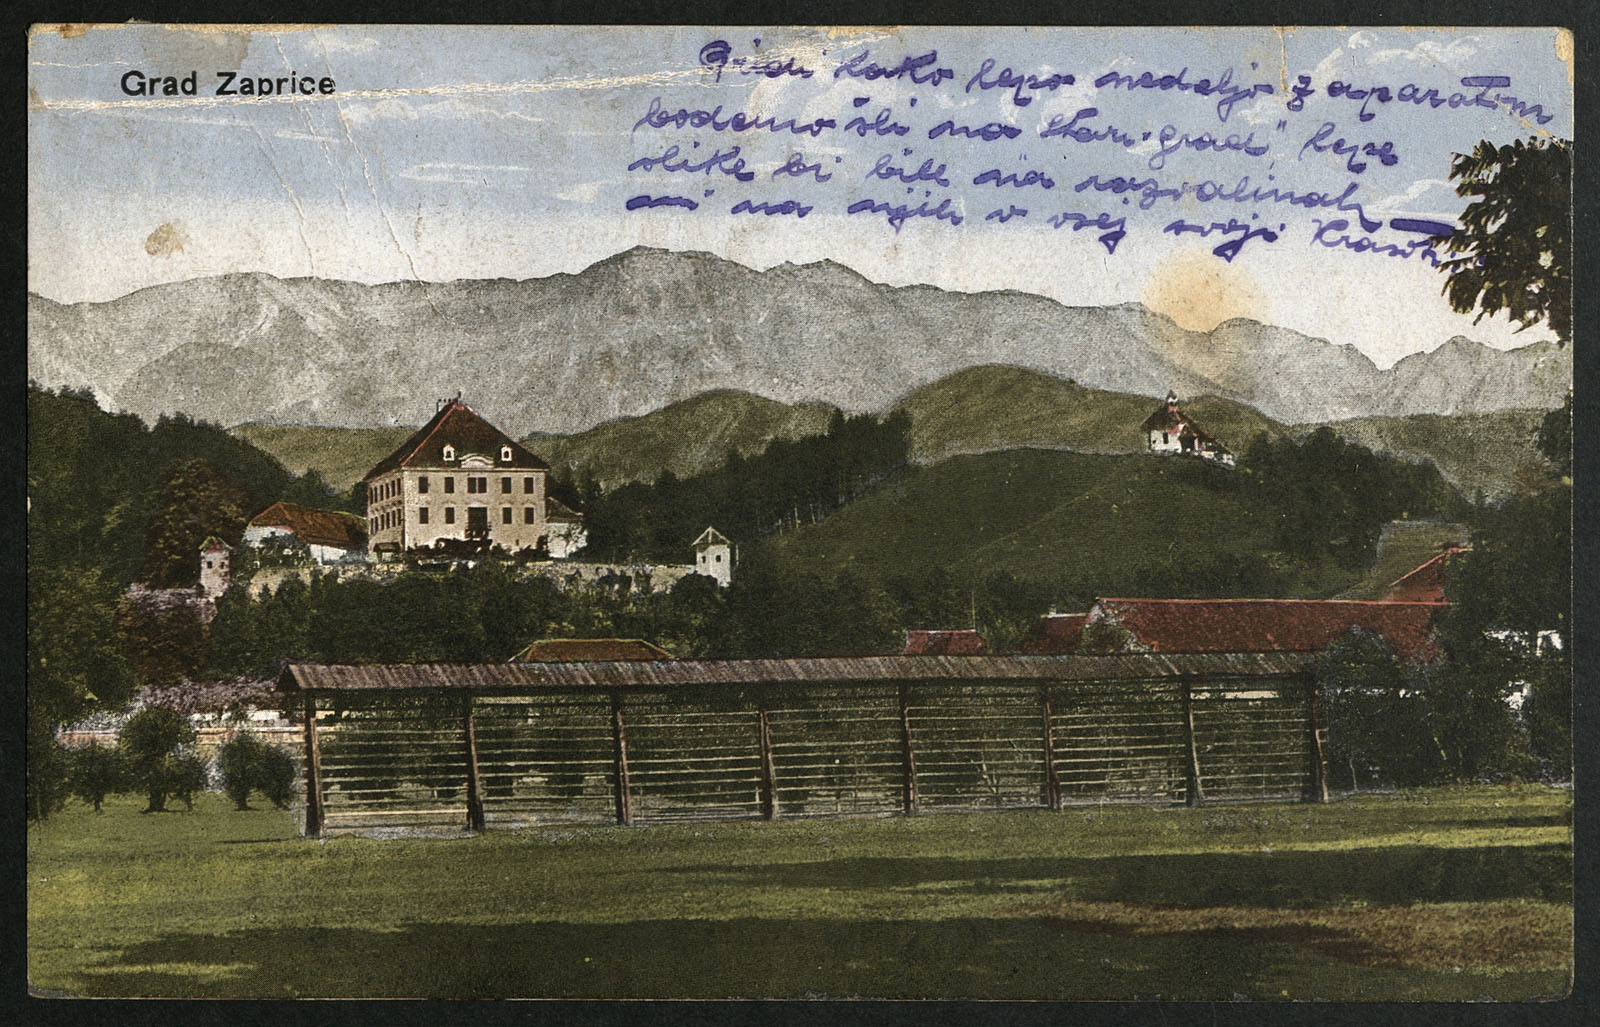 Grad Zaprice
Pridi kako lepo nedeljo z aparatom
bodemo šli na "Stari-grad", lepe
slike bi bile na razvalinah
mi na njih v vsej svoji krasoti